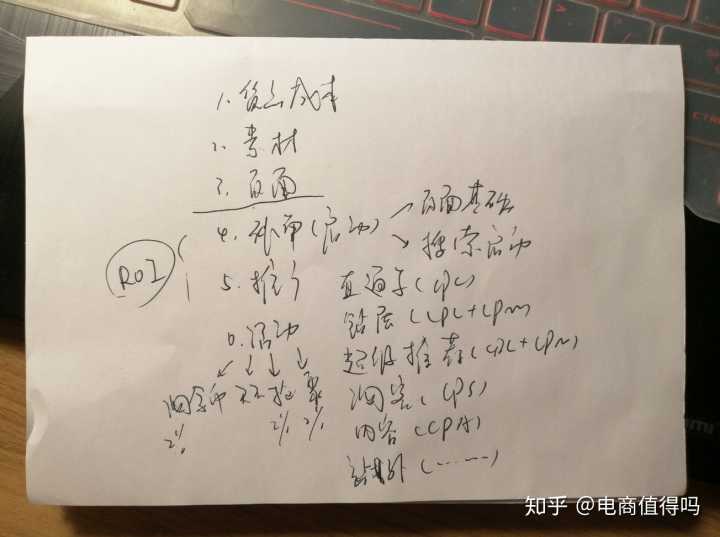 1. 货品成本
2. 素材
3. 页面
4. 补单(启动)
页面基础
搜索启动
ROI
5. 推广
直通车(CPC)
钻展(CPC+CPM)
超级推荐(CPC+CPM)
淘客(CPS)
内容(CPA)
站外(……)
6. 活动
淘金币 天天 抢 聚
2% 2% 2%
知乎 @电商值得吗